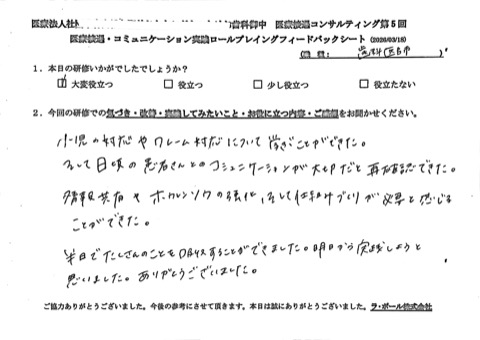 医療法人社 歯科御中 医療接遇コンサルティング第5回
医療接遇・コミュニケーション実践ロールプレイングフィードバックシート (2026/03/18)
(職種: 歯科医師 )
1.本日の研修いかがでしたでしょうか?
大変役立つ □ 役立つ □ 少し役立つ □ 役立たない
2.今回の研修での気づき・改善・実践してみたいこと・お役に立つ内容・ご感想をお聞かせください。
小児の対応やクレーム対応について学ぶことができた。
そして日頃の患者さんとのコミュニケーションが大切だと再確認できた。
情報共有やホウレンソウの強化、そして仕組みづくりが必要と感じる
ことができた。
半日でたくさんのことを吸収することができました。明日から実践しようと
思いました。ありがとうございました。
ご協力ありがとうございました。今後の参考にさせて頂きます。本日は誠にありがとうございました。ラ・ポール株式会社